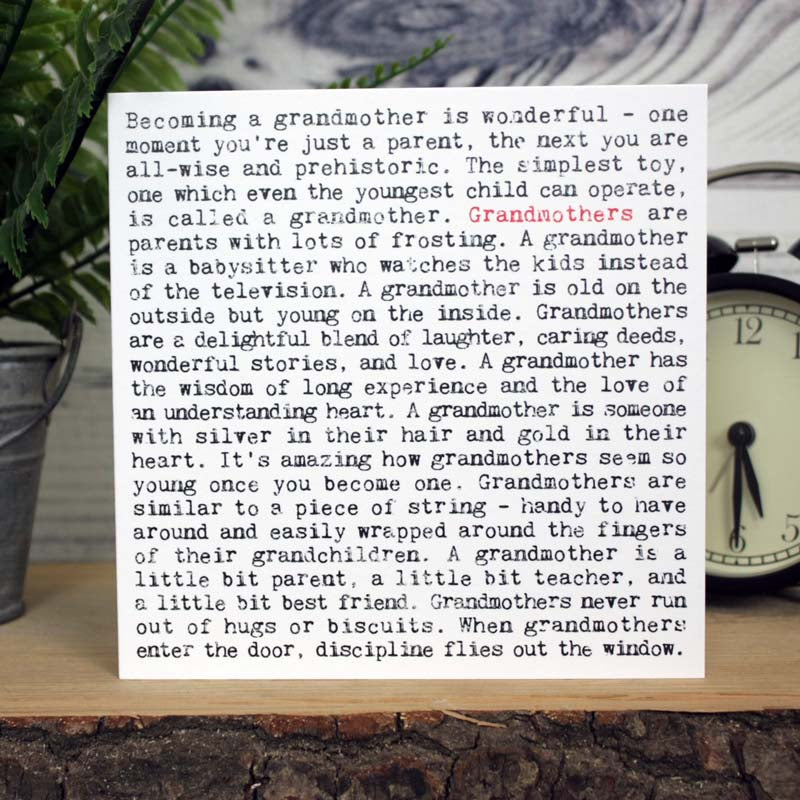 Becoming a grandmother is wonderful - one
moment you're just a parent, the next you are
all-wise and prehistoric. The simplest toy,
one which even the youngest child can operate,
is called a grandmother. Grandmothers are
parents with lots of frosting. A grandmother
is a babysitter who watches the kids instead
of the television. A grandmother is old on the
outside but young on the inside. Grandmothers
are a delightful blend of laughter, caring deeds,
wonderful stories, and love. A grandmother has
the wisdom of long experience and the love of
an understanding heart. A grandmother is someone
with silver in their hair and gold in their
heart. It's amazing how grandmothers seem so
young once you become one. Grandmothers are
similar to a piece of string - handy to have
around and easily wrapped around the fingers
of their grandchildren. A grandmother is a
little bit parent, a little bit teacher, and
a little bit best friend. Grandmothers never run
out of hugs or biscuits. When grandmothers
enter the door, discipline flies out the window.
12
5
6